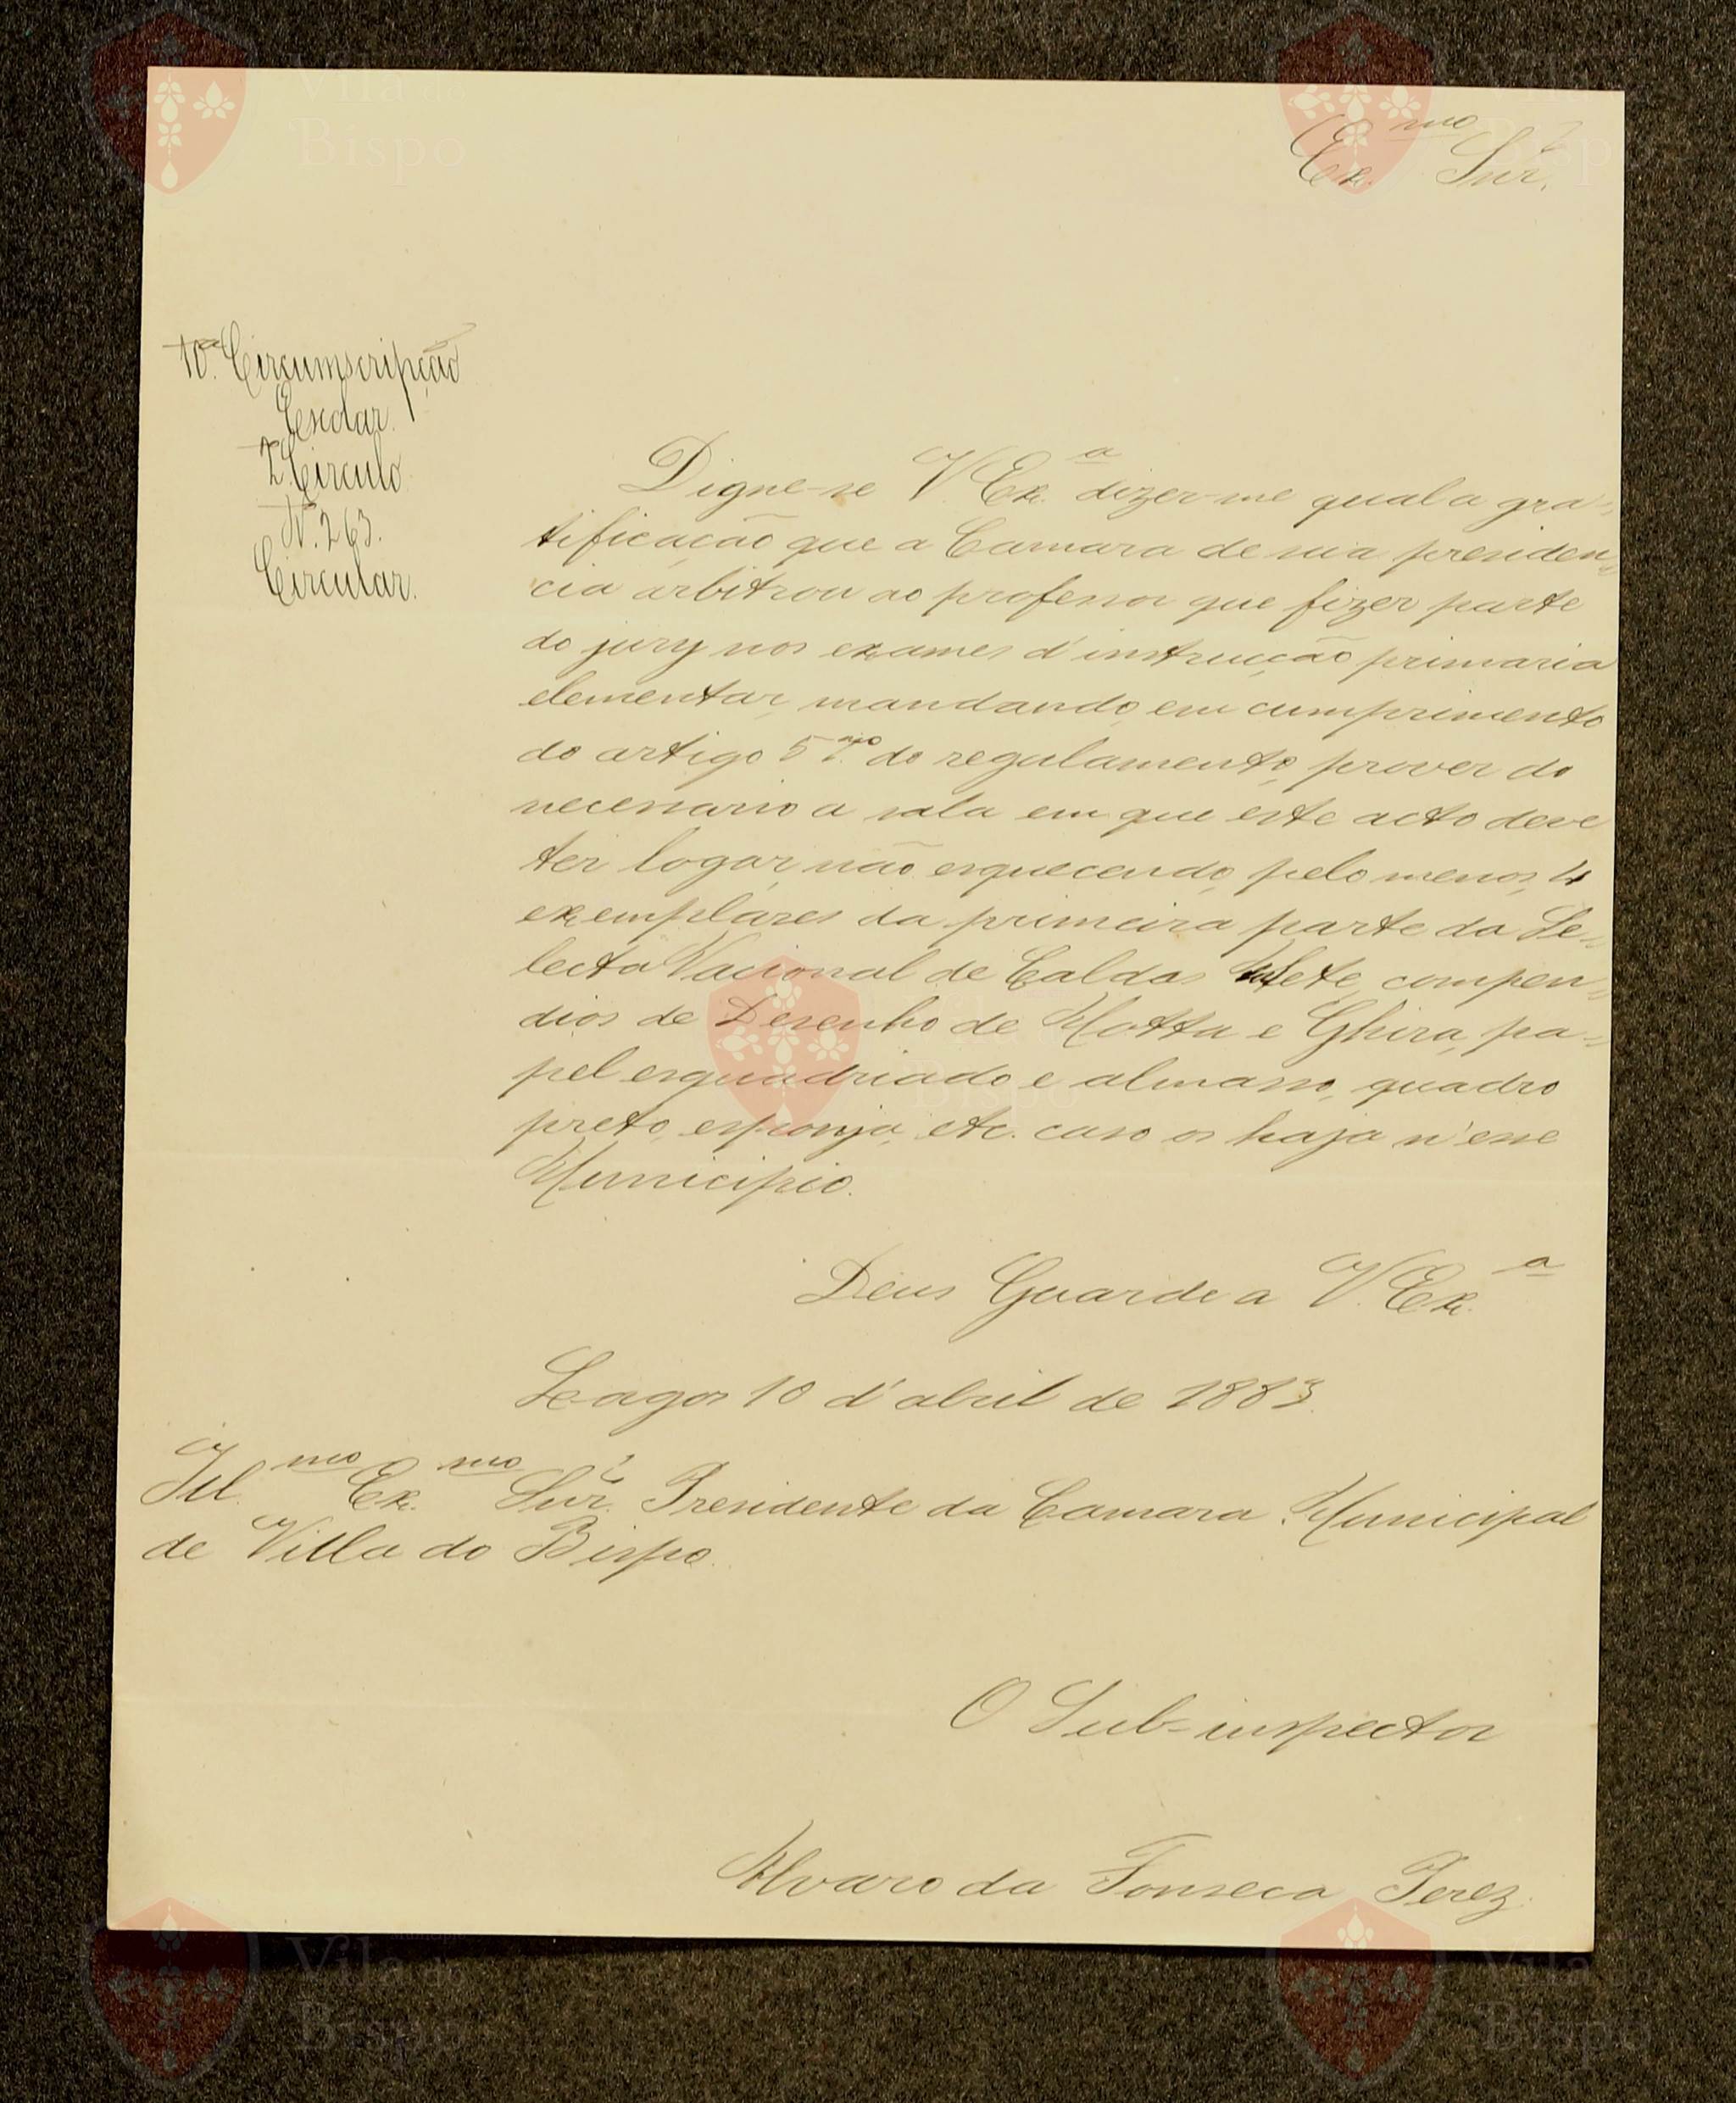 Ex.mo Snr.
10.a Circumscripção
Escolar.
2.º Circulo
N.º 263.
Circular.
Digne-se V. Ex.a dizer-me qual a gra-
tificação que a Camara de sua presiden-
cia arbitrou ao professor que fizer parte
do jury nos exames d'instrucção primaria
elementar, mandando, em cumprimento
do artigo do regulamento, prover do
necessario a sala em que este acto deve
ter logar, não esquecendo, pelo menos, 4
exemplares da primeira parte da Se-
lecta Nacional de Caldas Aulete, compen-
dios de Desenho de Motta e Ghira, pa-
pel esquadriado e almasso, quadro
preto, esponja, etc. caso os haja n'esse
Municipio.
Deus Guarde a V. Ex.a
Lagos 10 d'abril de 1883.
Ill.mo Ex.mo Snr. Presidente da Camara Municipal
de Villa do Bispo.
O Sub-inspector
Alvaro da Fonseca Perez.
Vila do
Bispo